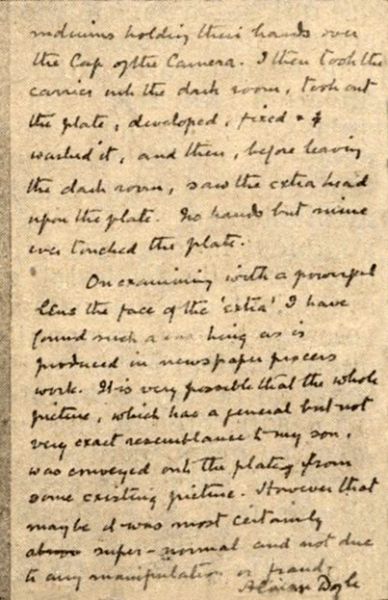 mediums holding their hands over
the Cap of the Camera. I then took the
carrier into the dark room, took out
the plate, developed, fixed &
washed it, and then, before leaving
the dark room, saw the extra head
upon the plate. No hands but mine
ever touched the plate.
On examining with a powerful
lens the face of the 'extra' I have
found such a marking as is
produced in newspaper process
work. It is very possible that the whole
picture, which has a general but not
very exact resemblance to my son,
was conveyed onto the plate from
some existing picture. However that
may be it was most certainly
super-normal and not due
to any manipulation or fraud.
A Conan Doyle